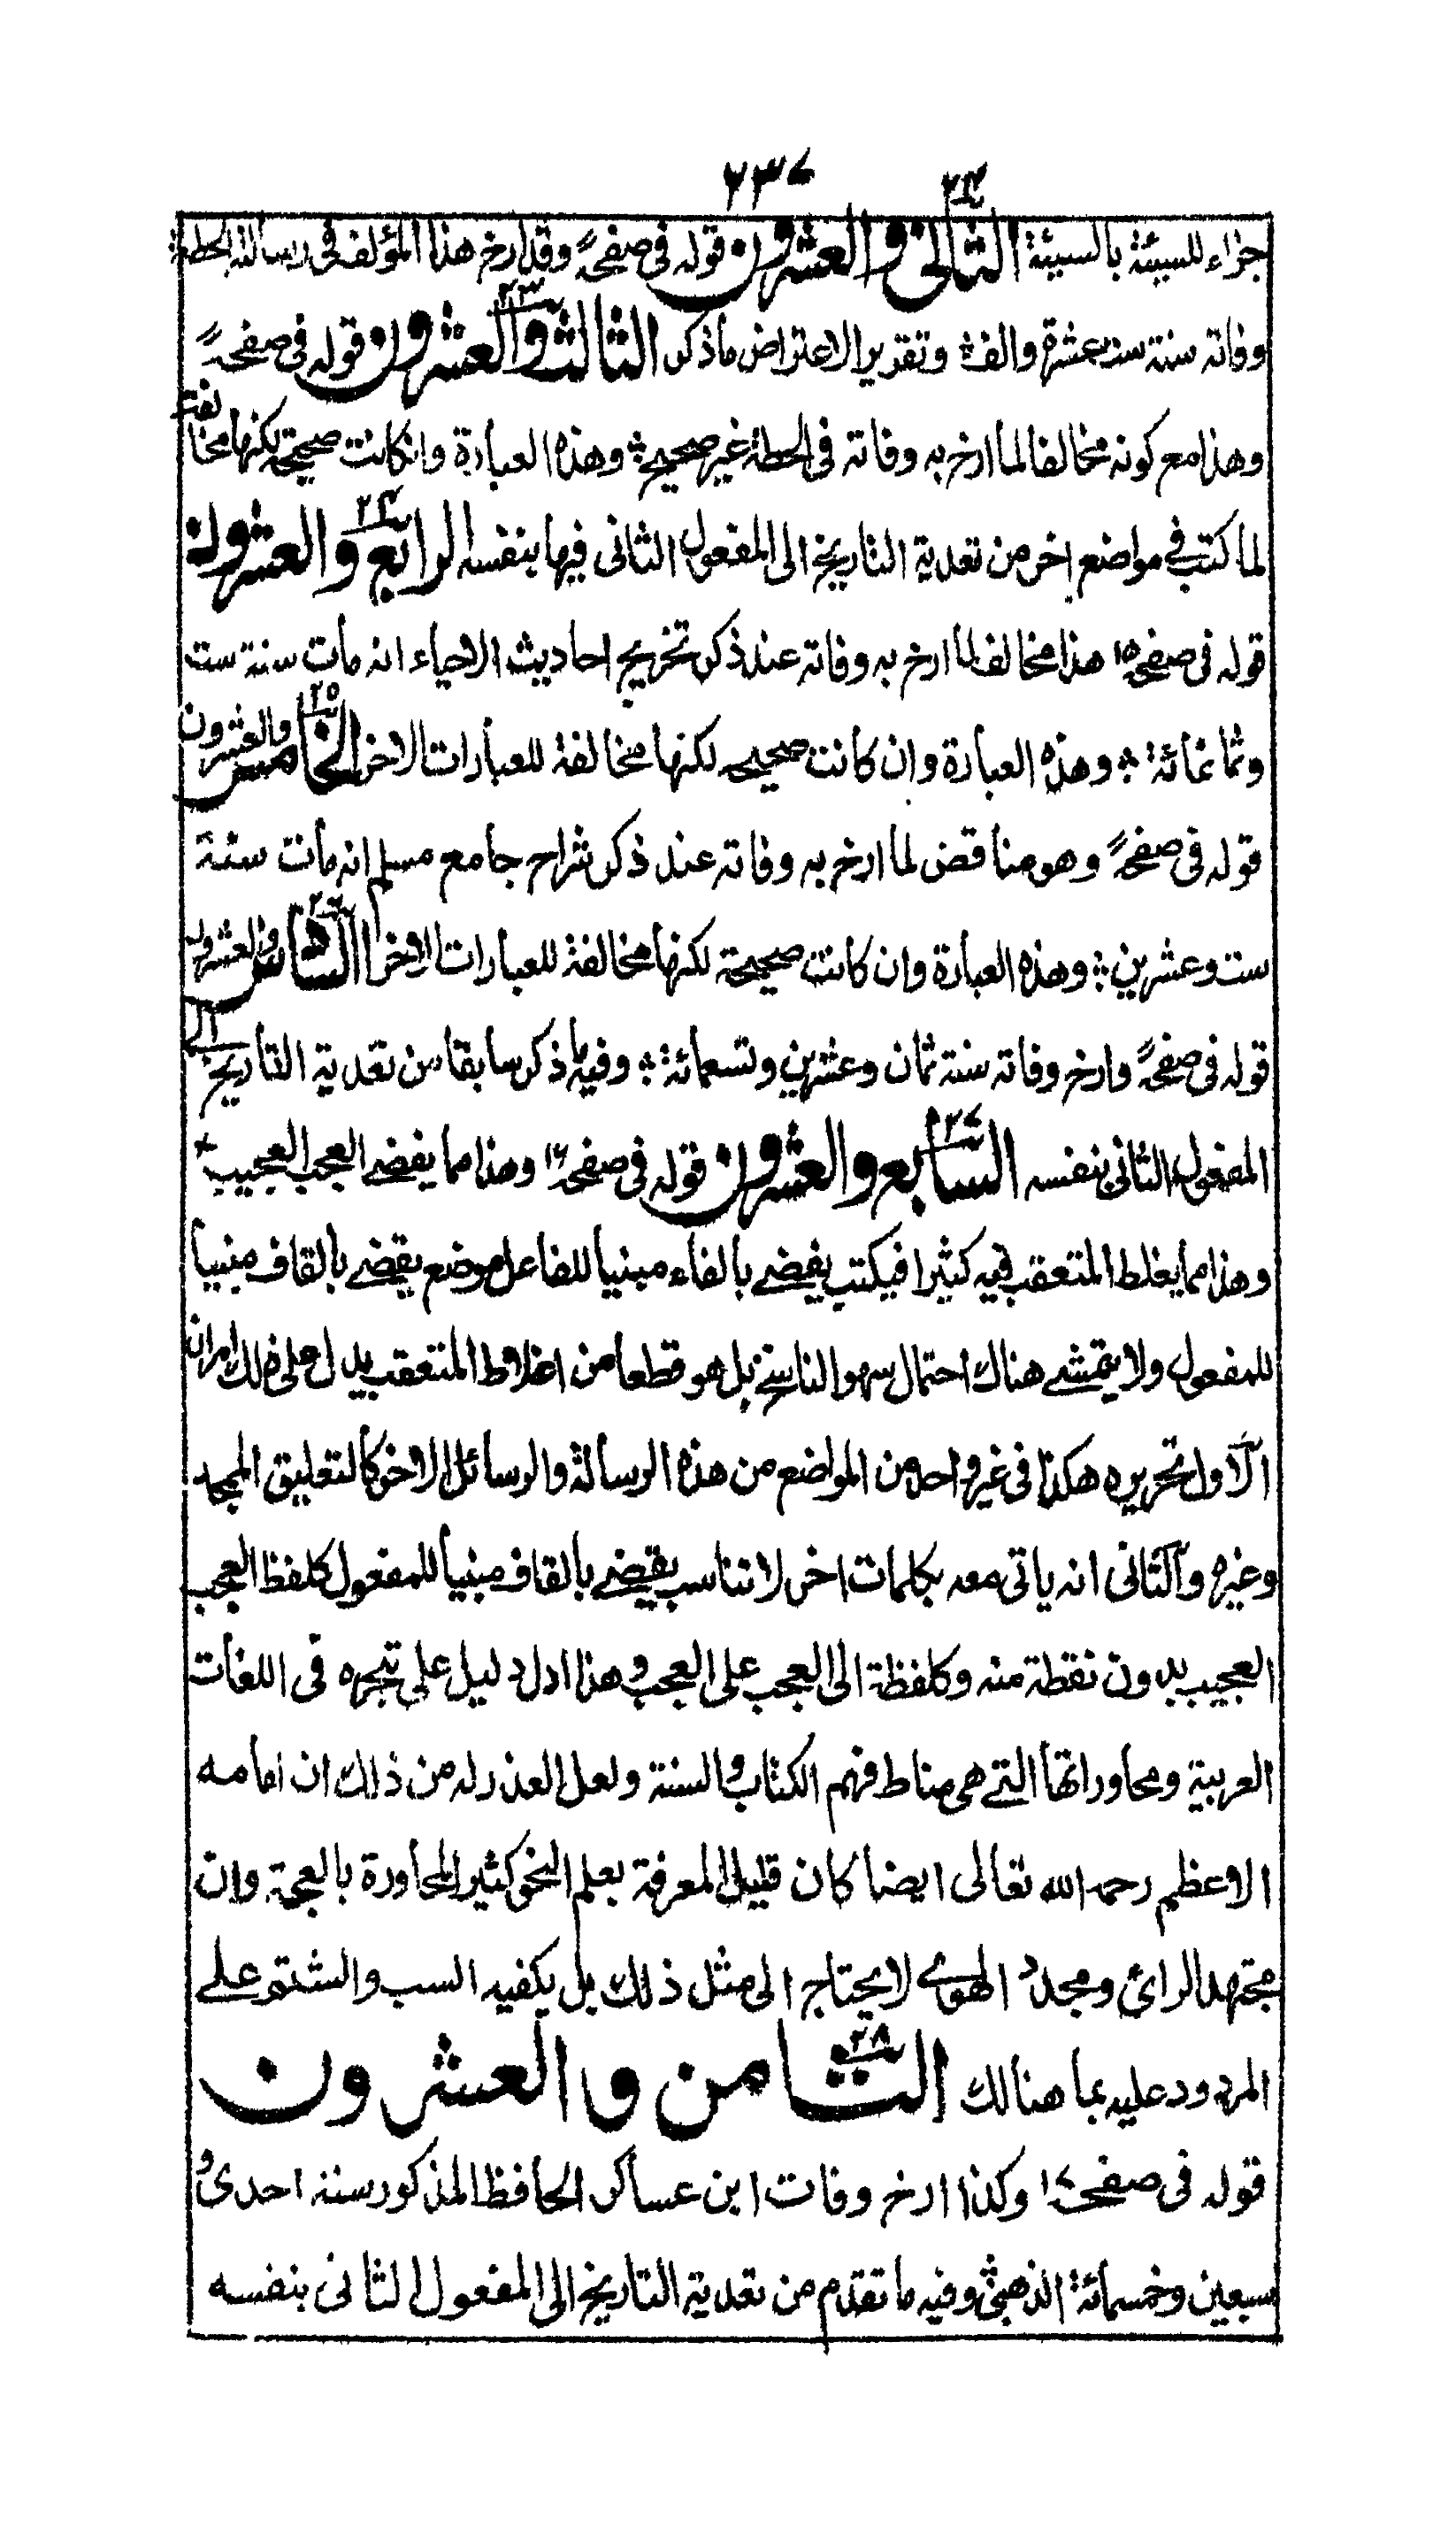 ٢٣٧
جزاء للسيئة بالسيئة الثانى والعشرون ٢٢ قوله فى صفحة وقد ارخ هذا المؤلف فى رسالته الحطة
وفاته سنة ست عشرة والف وتقرير الاعتراض ما ذكر الثالث والعشرون ٢٣ قوله فى صفحة
وهذا مع كونه مخالفا لما ارخ به وفاته فى الحطة غير صحيح وهذه العبارة وانكانت صحيحة لكنها مخالفة
لما كتب فى مواضع اخر من تعدية التاريخ الى المفعول الثانى فيها بنفسه الرابع والعشرون ٢٤
قوله فى صفحه ١٥ هذا مخالف لما ارخ به وفاته عند ذكر تخريج احاديث الاحياء انه مات سنة ست
وثمانمائة وهذه العبارة وان كانت صحيحه لكنها مخالفة للعبارات الاخر الخامس والعشرون ٢٥
قوله فى صفحة وهو مناقض لما ارخ به وفاته عند ذكر شراح جامع مسلم انه مات سنة
ست وعشرين وهذه العبارة وان كانت صحيحة لكنها مخالفة للعبارات الاخر السادس والعشرون ٢٦
قوله فى صفحة وارخ وفاته سنة ثمان وعشرين وتسعمائة وفيه ما ذكر سابقا من تعدية التاريخ الى
المفعول الثانى بنفسه السابع والعشرون ٢٧ قوله فى صفحه ١٦ وهذا مما يفضے العجب العجيب
وهذا مما يغلط المتعقب فيه كثيرا فيكتب يفضے بالفاء مبنيا للفاعل موضع يقضے بالقاف مبنيا
للمفعول ولا يتمشے هناك احتمال سهو الناسخ بل هو قطعا من اغلاط المتعقب يدل على ذلك امران
الاول تحريره هكذا فى غير واحد من المواضع من هذه الرسالة والرسائل الاخر كالتعليق الممجد
وغيره والثانى انه ياتى معه بكلمات اخر لا تناسب يقضے بالقاف مبنيا للمفعول كلفظ العجب
العجيب بدون نقطة منه وكلفظة الى العجب على العجب وهذا ادل دليل على تبحره فى اللغات
العربية ومحاوراتها التے هى مناط فهم الكتاب والسنة ولعل العذر له من ذلك ان امامه
الاعظم رحمه الله تعالى ايضا كان قليل المعرفة بعلم النحو كثير المحاورة بالعجمة وان
مجتهد الرائ ومجدد الهوے لا يحتاج الى مثل ذلك بل يكفيه السب والشتم علے
المردود عليه بما هنالك الثامن والعشرون ٢٨
قوله فى صفحه ١٧ وكذا ارخ وفات ابن عساكر الحافظ المذكور سنة احدى و
سبعين وخمسمائة الذهبى وفيه ما تقدم من تعدية التاريخ الى المفعول الثانى بنفسه